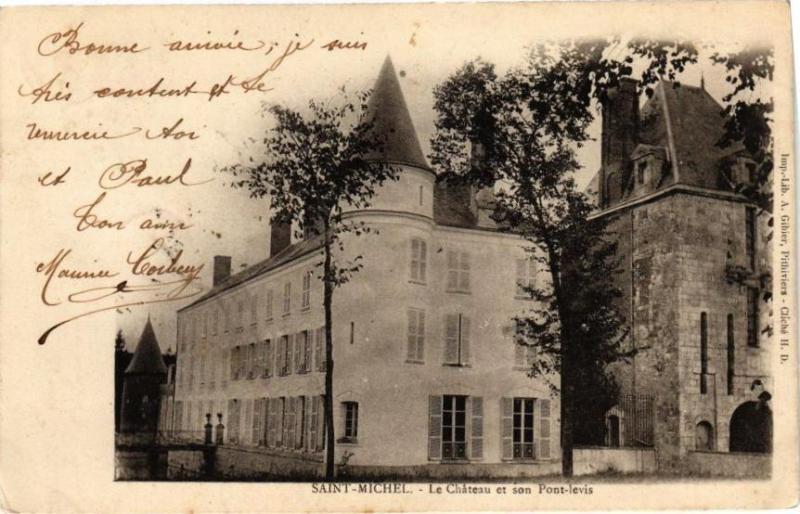 Bonne arrivée, je suis
très content et te
remercie toi
et Paul
Ton ami
Maurice
Imp.-Lib. A. Gibier, Pithiviers - Cliché H. D.
SAINT-MICHEL. - Le Château et son Pont-levis